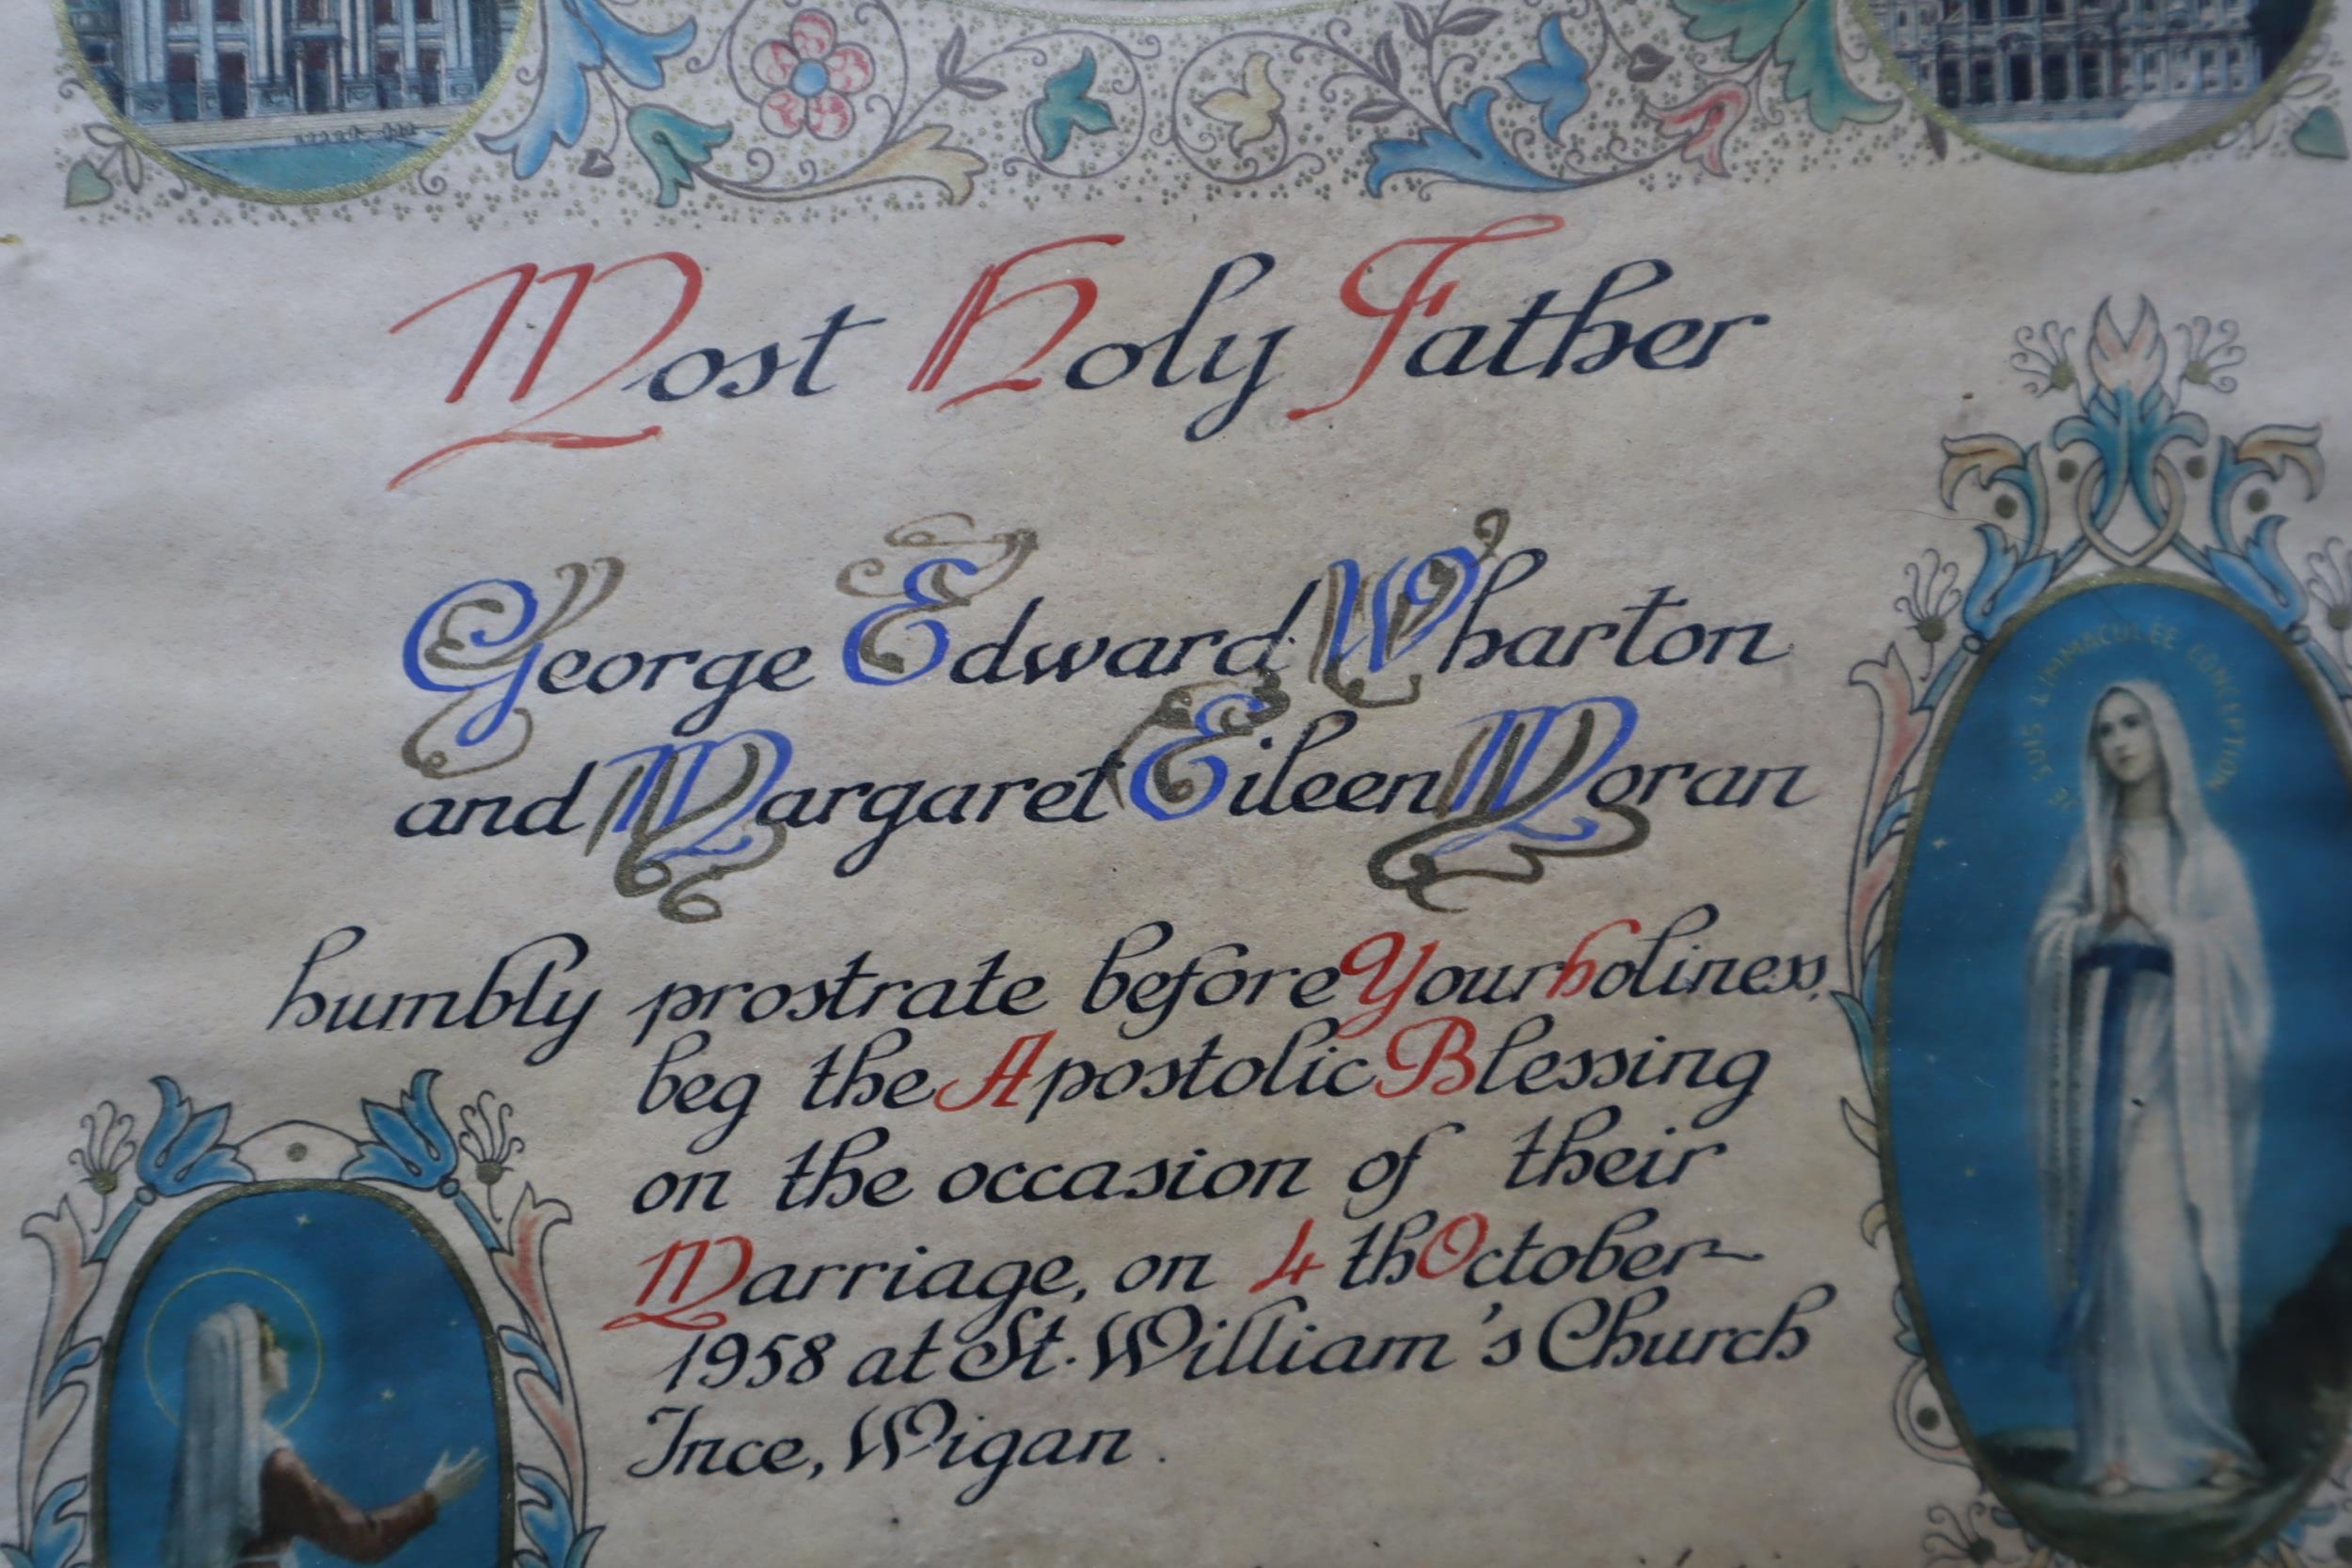 Most Holy Father
George Edward Wharton
and Margaret Eileen Moran
humbly prostrate before Your holiness,
beg the Apostolic Blessing
on the occasion of their
Marriage, on 4th October
1958 at St. William's Church
Ince, Wigan.
JE SUIS L'IMMACULÉE CONCEPTION